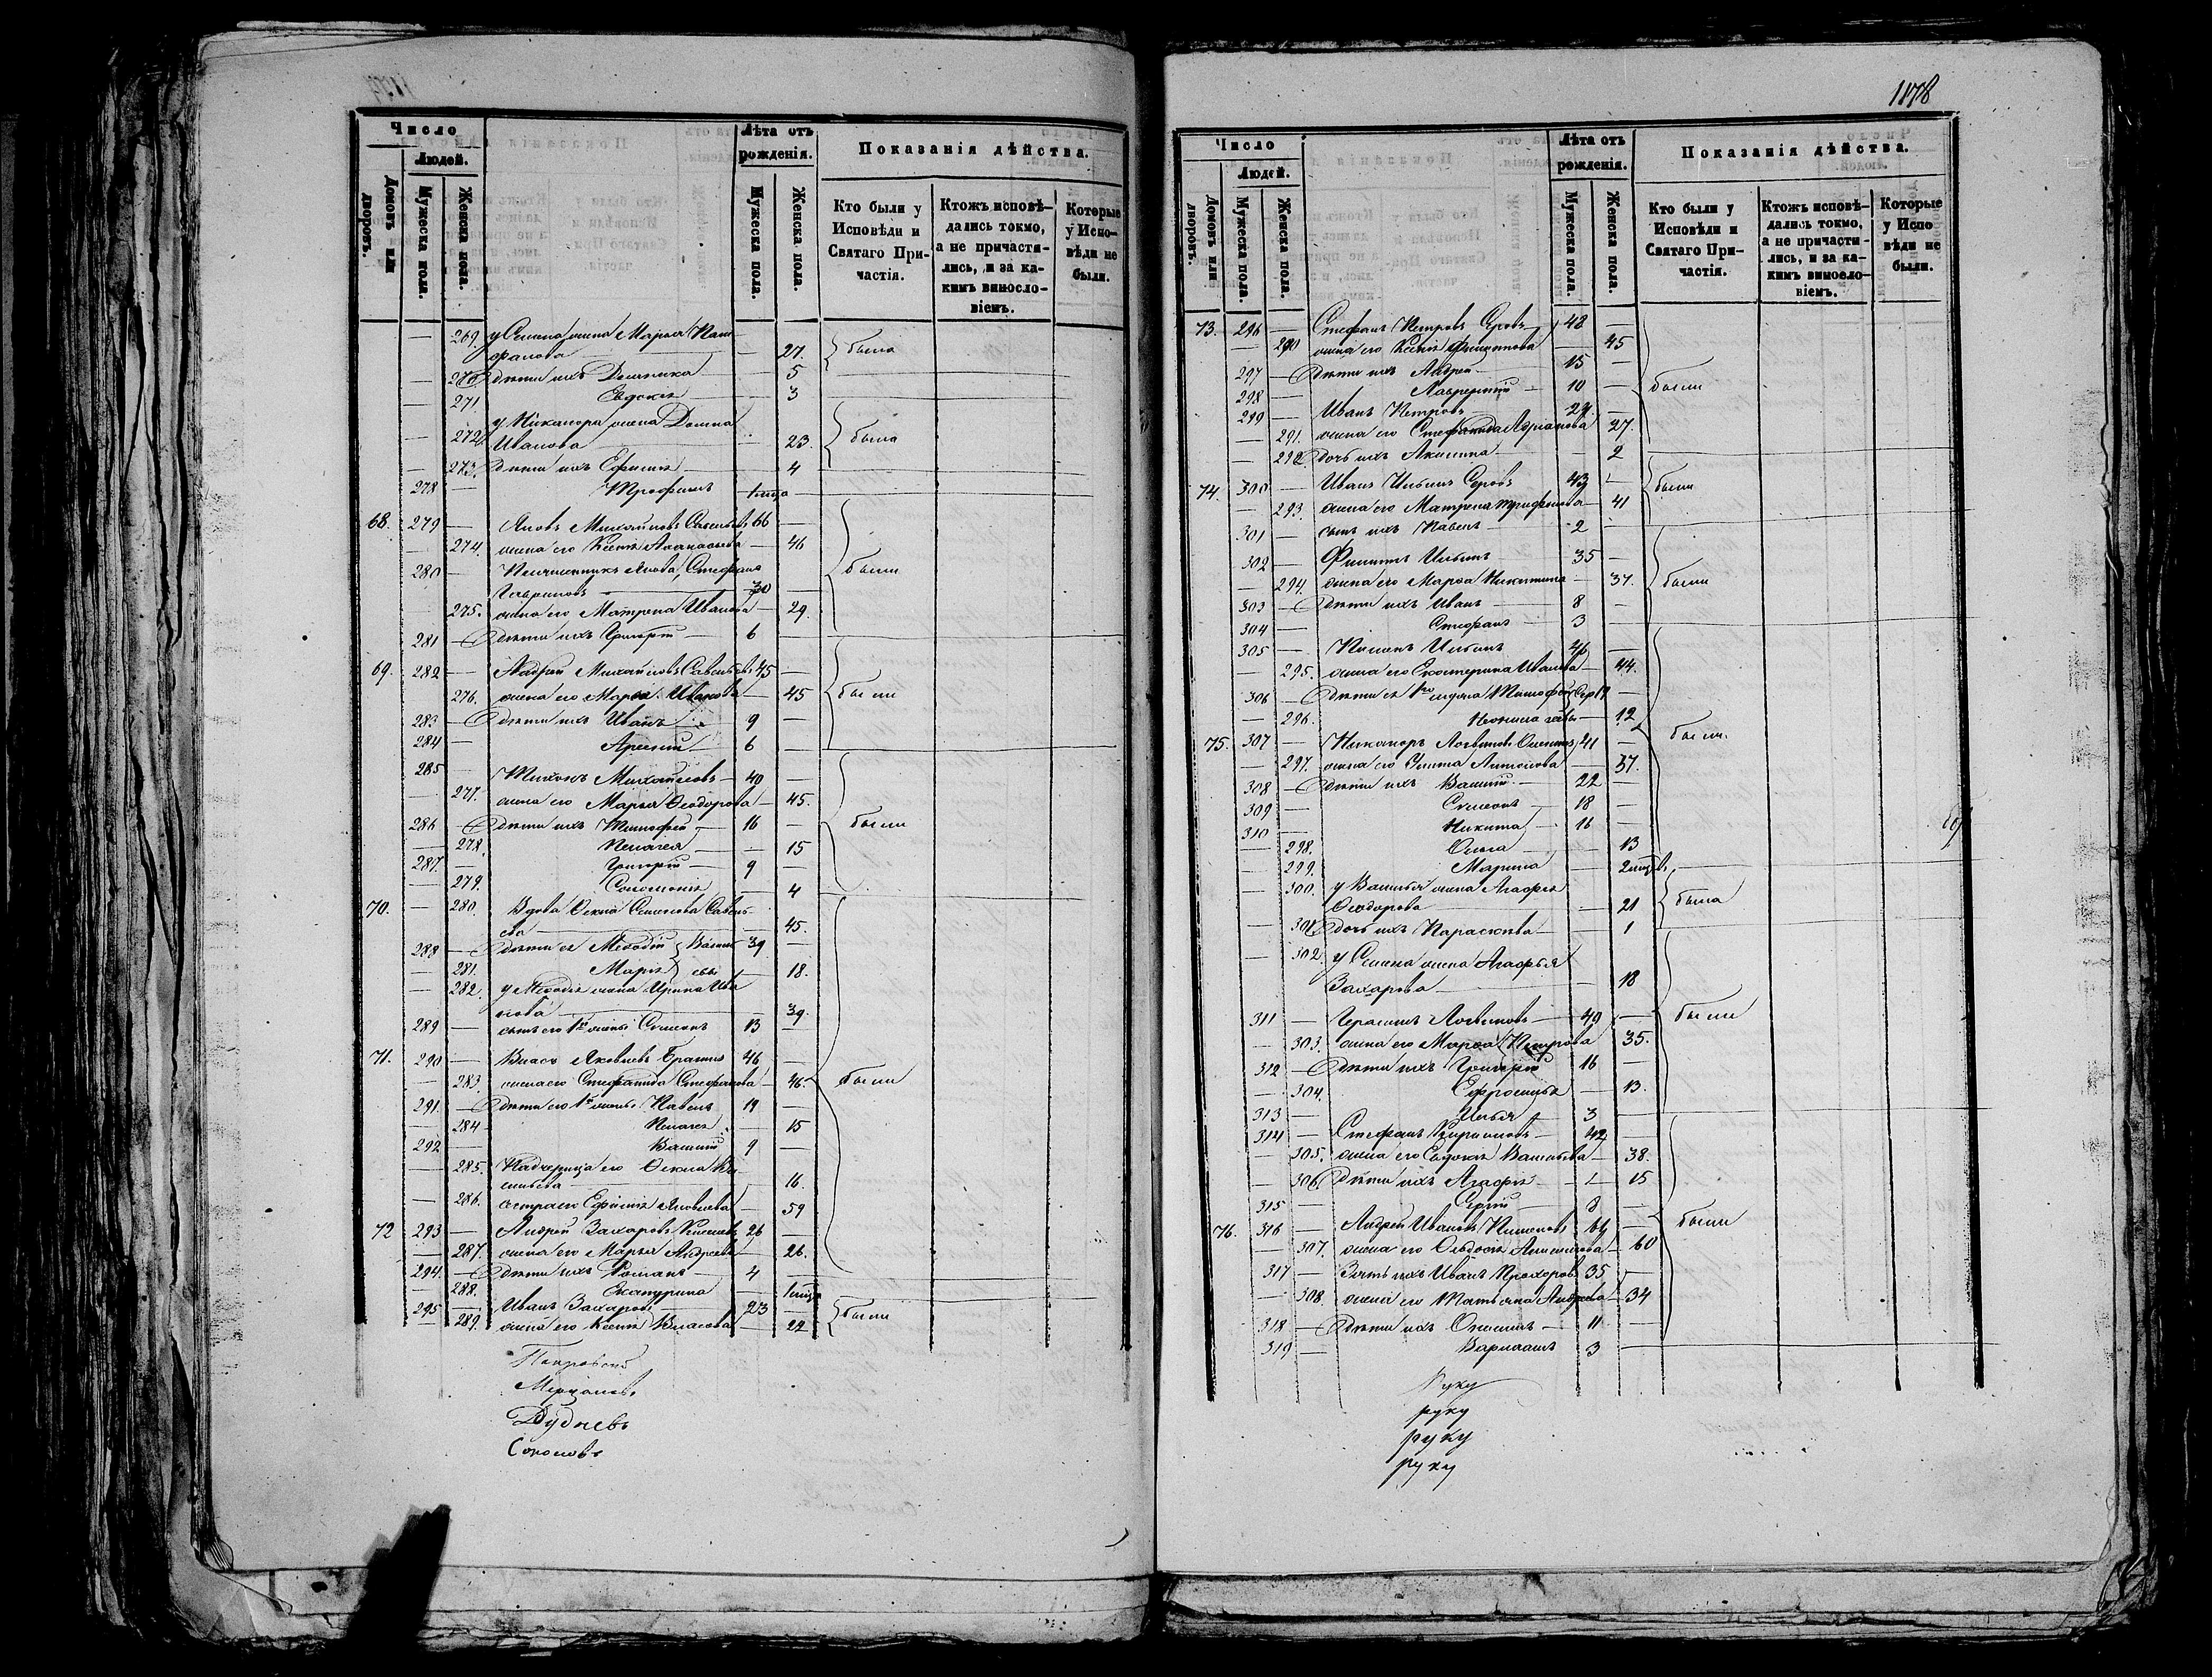 Число
Людей.
Домовъ или дворовъ.
Мужеска пола.
Женска пола.
Лѣта отъ рожденія.
Мужеска пола.
Женска пола.
Показанія дѣйства.
Кто были у Исповѣди и Святаго При-частія.
Ктожъ исповѣ-дались токмо, а не причасти-лись, и за ка-кимъ винослo-віемъ.
Которые у Испо-вѣди не были.
— 269. у жена Марья —
27. была
— 270. дѣти ихъ Домника — 5
— 271. Евдокія — 3
у Никанора жена Домна
— 272. Иванова — 23. была
— 273. дѣти ихъ — 4
278 — Трофимъ —
68. 279 — Яковъ Михайловъ Савельевъ 66 —
— 274. жена его Ксенія Аѳанасьева — 46
280 — Яковa, Стефанъ были
Гавриловъ — 30
275. жена его Матрона Иванова — 29.
281 — дѣти ихъ Григорій — 6
69. 282 — Андрей Михайловъ Савельевъ 45 —
276. жена его Марья Иванова — 45 были
283 — дѣти ихъ Иванъ — 9 —
284 — Арсеній — 6 —
285 — Тихонъ Михайловъ — 40 —
277. жена его Марья Ѳеодорова — 45.
286 — дѣти ихъ Тимофей — 16 — были
— 278. Пелагея — 15
287. — Григорій — 9 —
— 279. Соломонія — 4
70. — 280. Вдова Ѳекла Семенова Савель-
ева — 45.
288 — дѣти ея Меѳодій 39 —
— 281. Марія — 18.
— 282. у Меѳодія жена Ирина Ива
нова — 39.
289 — сынъ его 1й жены Симеонъ 13 —
71. 290 — Власъ Яковлевъ 46 —
— 283 жена его Стефанида Стефанова — 46. были
291. — дѣти его 1й жены Павелъ 19 —
— 284 Пелагея — 15
292 — Василій 9 —
— 285. Падчерица его Ѳекла Ва
сильева — 16.
— 286. сестра его Яковлева — 59
72 293 — Андрей Захаровъ 26 —
— 287. жена его Марья Андреева — 26.
294. — дѣти ихъ Романъ — 4 —
— 288. Екатерина —
295 — Иванъ Захаровъ — 23 —
— 289. жена его Ксенія Власова — 22 были
Покровской
Дубневъ
Соколовъ
1178
Число
Людей.
Домовъ или дворовъ.
Мужеска пола.
Женска пола.
Лѣта отъ рожденія.
Мужеска пола.
Женска пола.
Показанія дѣйства.
Кто были у Исповѣди и Святаго При-частія.
Ктожъ исповѣ-дались токмо, а не причасти-лись, и за ка-кимъ винослo-віемъ.
Которые у Испо вѣди не были.
73. 296 — Стефанъ Петровъ Серовъ 48 —
— 290 жена его Ксенія Филиппова — 45
297 — дѣти ихъ Андрей — 15 —
298 — Лаврентій — 10 — были
299 — Иванъ Петровъ —
— 291. жена его Стефанида Адріанова 27.
— 292 дочь ихъ Акилина — 2
74. 300 — Иванъ Ильинъ Серовъ 43 — были
— 293. жена его Матрена Трифонова — 41
301 — сынъ ихъ Павелъ — 2 —
302 — Филиппъ Ильинъ — 35 —
— 294. жена его Марѳа Никитина — 37. были
303 — дѣти ихъ Иванъ — 8 —
304 — Стефанъ — 3 —
305 — Ильинъ 46 —
— 295. жена его Екатерина Иванова — 44.
306 — дѣти ея 1го Тимофей
— 296. — 12
75. 307 — Никаноръ Логвиновъ 41 — были.
— 297. жена его Антонова — 37.
308 — дѣти ихъ Василій — 22 —
309 — Симеонъ — 18 —
310 — Никита — 16 —
— 298. Ольга — 13
— 299. Марина —
— 300. у Василья жена Агафія
Ѳеодорова — 21 была
— 301 дочь ихъ Параскева — 1
— 302. у Семена жена Агафья
Захарова — 18
311 — Герасимъ Логвиновъ — 40 — были
— 303. жена его Марѳа Петрова 35.
312 — дѣти ихъ Григорій 16 —
— 304. Ефросинья — 13.
313 — Илья — 3 —
314 — Стефанъ Кирилловъ — 42 —
— 305. жена его Евдокія Васильева — 38.
— 306. дѣти ихъ Агафія — 15
315 — Сергій — 8 —
76. 316 — Андрей Ивановъ — были
— 307. жена его — 60
317 — Зять ихъ Иванъ Прохоровъ 35 —
— 308. жена его Татьяна Андреева 34
318 — дѣти ихъ Онисимъ — 11 —
319 — Варлаамъ 3
Руку
руку
руку
руку